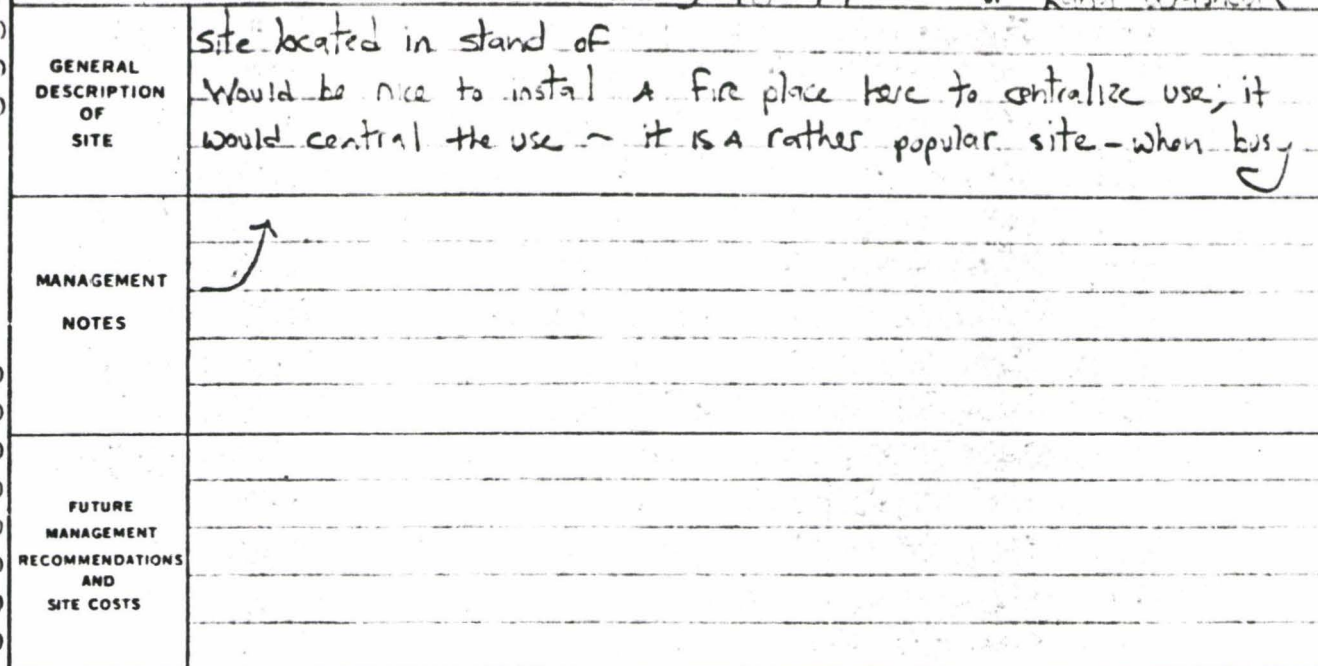 GENERAL
DESCRIPTION
OF
SITE
Site located in stand of
Would be nice to instal A fire place here to centralize use; it
would central the use ~ it is A rather popular site - when busy
MANAGEMENT
NOTES
FUTURE
MANAGEMENT
RECOMMENDATIONS
AND
SITE COSTS